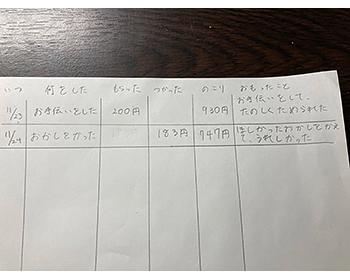 いつ 何をした もらった つかった のこり おもったこと
11/23 お手伝いをした 200円 930円 お手伝いをして、
たのしくためられた
11/24 おかしをかった 183円 747円 ほしかったおかしをかえ
て、うれしかった